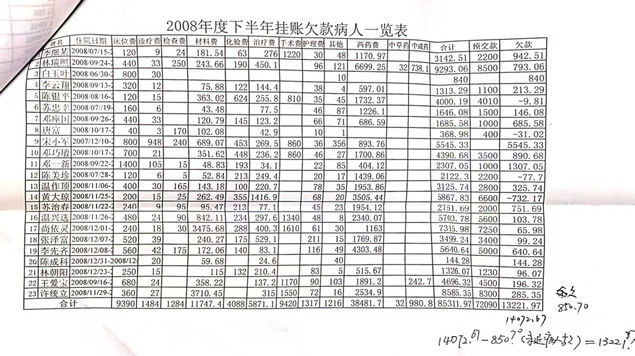 2008年度下半年挂账欠款病人一览表
姓名 住院日期 床位费 诊疗费 检查费 材料费 化验费 治疗费 手术费 护理费 其他 西药费 中草药 中成药 合计 预交款 欠款
2008/07/15- 120 9 24 181.54 63 276 1220 30 48 1170.97 3142.51 2200 942.51
2 林瑞照 2008/09/24- 440 33 250 243.66 190 450.1 96 121 6699.25 32 738.1 9293.06 8500 793.06
3 白玉叶 2008/06/30- 800 30 10 840 840
4 李云翔 2008/09/13- 320 12 75.88 122 144.4 38 4 597.01 1313.29 1100 213.29
5 陈银平 2008/08/16- 120 15 363.02 624 255.8 810 35 45 1732.37 4000.19 4010 -9.81
6 苏忠幸 2008/07/19- 160 6 43.48 77.5 46 87 1226.1 1646.08 1500 146.08
7 邓座国 2008/09/26- 440 33 120.79 145 123.2 66 71 686.59 1685.58 1000 685.58
8 唐富 2008/10/17- 40 3 170 102.08 42.9 10 1 368.98 400 -31.02
9 宋小军 2007/12/10- 800 948 240 689.07 453 269.5 860 36 356 893.76 5545.33 5545.33
10 邓巧敏 2008/10/17- 700 21 351.62 448 236.2 860 46 27 1700.86 4390.68 3500 890.68
11 邓一新 2008/09/22- 1400 105 15 48.83 193 34.1 22 85 404.12 2307.05 1000 1307.05
12 陈美珍 2008/07/28- 120 6 5 52.84 213 249.4 20 17 1439.06 2122.3 2200 -77.7
13 温作顶 2008/11/06- 400 30 165 143.18 100 220.7 78 35 1953.86 3125.74 2800 325.74
14 黄大琼 2008/11/25- 200 15 25 262.49 355 1416.9 68 20 3505.44 5867.83 6600 -732.17
15 苏治春 2008/11/22- 240 9 95 95.47 213 77.1 45 23 1954.12 2751.69 2000 751.69
16 温兴选 2008/11/26- 480 24 90 842.11 234 297.6 1340 48 8 2340.07 5703.78 5600 103.78
17 尚依灵 2008/12/01- 240 18 30 3475.68 288 400.3 1610 61 30 1163 7315.98 7250 65.98
18 张泽富 2008/12/07- 520 39 240.27 175 529.1 211 15 1769.87 3499.24 3400 99.24
19 李先齐 2008/12/08- 560 42 175 172.06 140 83.1 116 49 4303.48 5640.64 5000 640.64
20 陈成科 2008/12/31-2008/12 20 59.68 24.6 40 144.28 144.28
21 林朝阳 2008/12/23- 250 15 115 132 210.4 83 5 515.67 1326.07 1230 96.07
22 王爱宝 2008/09/16- 680 24 358.22 137.2 1170 90 103 1891.2 242.7 4696.32 4500 196.32
23 许统立 2008/11/29- 360 27 3710.45 315 1550 72 16 2534.9 8585.35 8300 285.35
合计 9390 1484 1284 11747.4 4088 5871.1 9420 1317 1216 38481.7 32 980.8 85311.97 72090 13221.97
850.70
14072.67